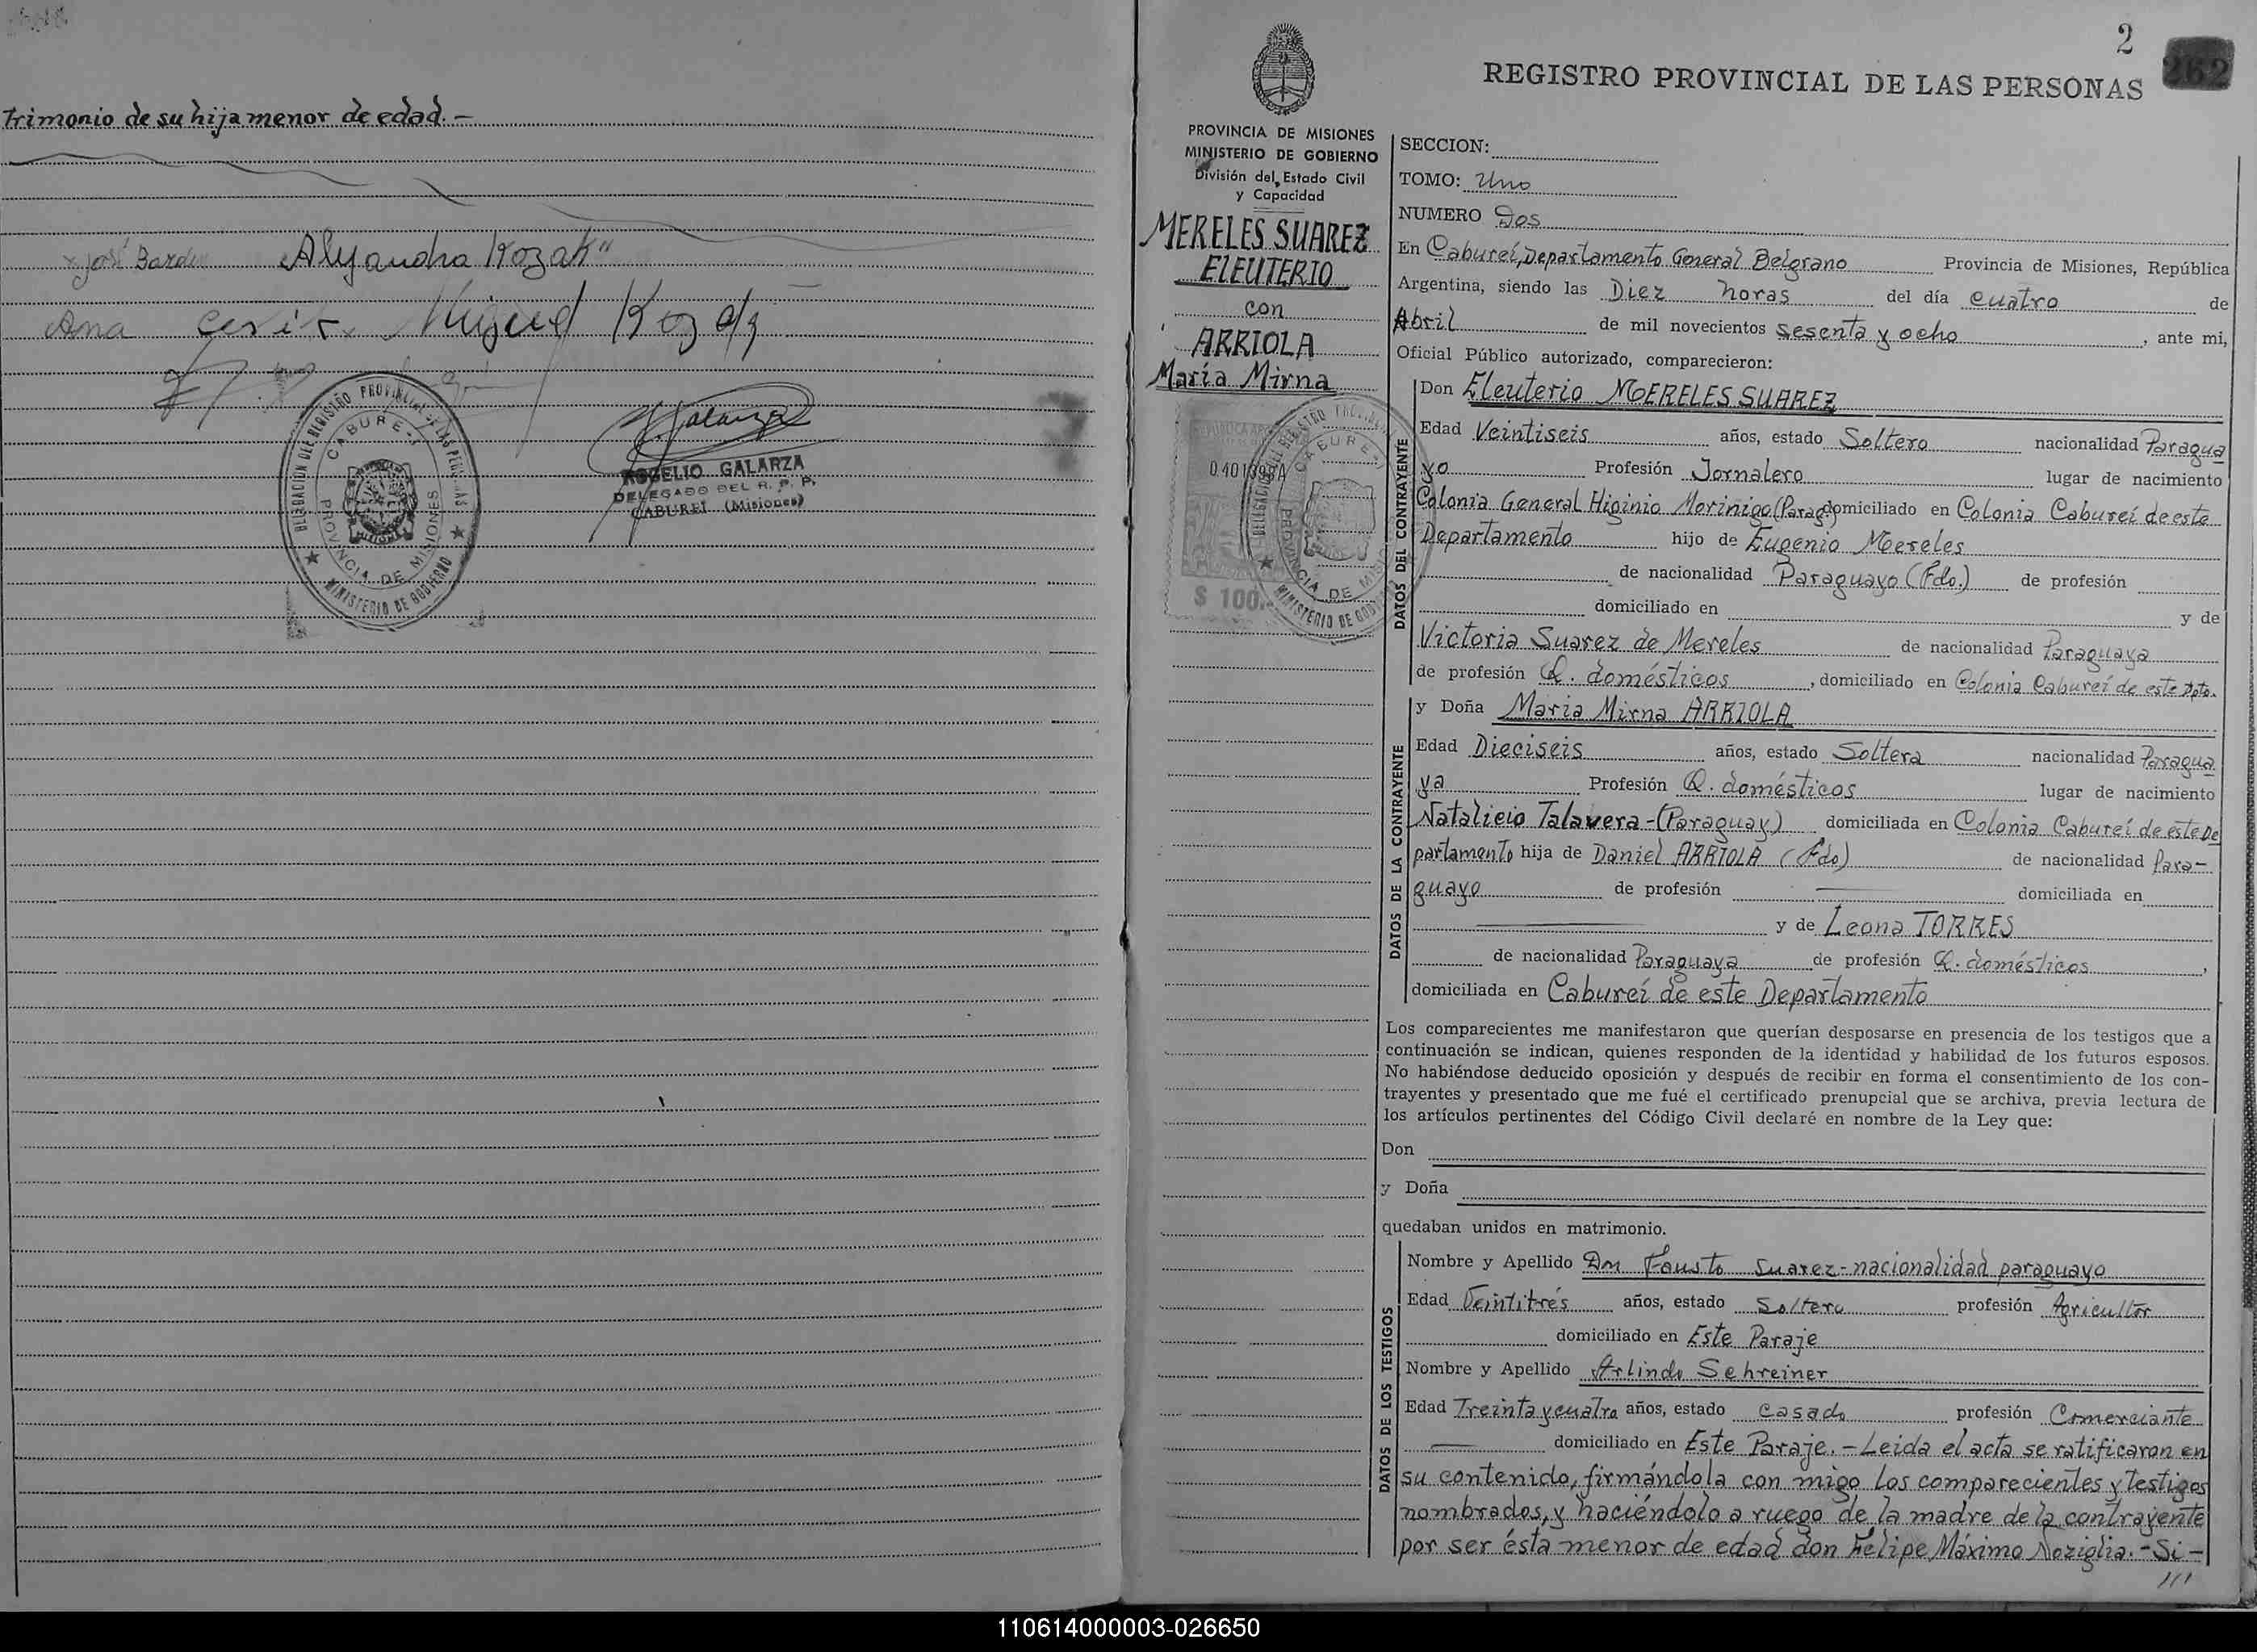 trimonio de su hija menor de edad.-
José
Alejandra Kozak
Ana Miguel
DELEGACION DEL REGISTRO PROVINCIAL DE LAS PERSONAS
CABUREI
PROVINCIA DE MISIONES
MINISTERIO DE GOBIERNO
R. Galarza
ROGELIO GALARZA
DELEGADO DEL R. P. P.
CABUREI (Misiones)
2
262
REGISTRO PROVINCIAL DE LAS PERSONAS
PROVINCIA DE MISIONES
MINISTERIO DE GOBIERNO
División del Estado Civil
y Capacidad
MERELES SUAREZ
ELEUTERIO
con
ARRIOLA
María Mirna
$ 100.-
SECCION:
TOMO: Uno
NUMERO Dos
En Cabureí, Departamento General Belgrano Provincia de Misiones, República
Argentina, siendo las Diez horas del día cuatro de
Abril de mil novecientos sesenta y ocho, ante mi,
Oficial Público autorizado, comparecieron:
DATOS DEL CONTRAYENTE
Don Eleuterio MERELES SUAREZ
Edad Veintiseis años, estado Soltero nacionalidad Paragua
yo Profesión Jornalero lugar de nacimiento
Colonia General Higinio Morinigo (Parag.) domiciliado en Colonia Cabureí de este
Departamento hijo de Eugenio Mereles
de nacionalidad Paraguayo (Fdo.) de profesión
domiciliado en y de
Victoria Suarez de Mereles de nacionalidad Paraguaya
de profesión Q. domésticos, domiciliado en Colonia Cabureí de este Dpto.
DATOS DE LA CONTRAYENTE
y Doña Maria Mirna ARRIOLA
Edad Dieciseis años, estado Soltera nacionalidad Paragua
ya Profesión Q. domésticos lugar de nacimiento
Natalicio Talavera-(Paraguay) domiciliada en Colonia Cabureí de este De
partamento hija de Daniel ARRIOLA (Fdo) de nacionalidad Para-
guayo de profesión domiciliada en
y de Leona TORRES
de nacionalidad Paraguaya de profesión Q. domésticos,
domiciliada en Cabureí de este Departamento
Los comparecientes me manifestaron que querían desposarse en presencia de los testigos que a
continuación se indican, quienes responden de la identidad y habilidad de los futuros esposos.
No habiéndose deducido oposición y después de recibir en forma el consentimiento de los con-
trayentes y presentado que me fué el certificado prenupcial que se archiva, previa lectura de
los artículos pertinentes del Código Civil declaré en nombre de la Ley que:
Don
y Doña
quedaban unidos en matrimonio.
DATOS DE LOS TESTIGOS
Nombre y Apellido Don Fausto Suarez-nacionalidad paraguayo
Edad Veintitrés años, estado Soltero profesión Agricultor
domiciliado en Este Paraje
Nombre y Apellido Arlindo Schreiner
Edad Treinta y cuatro años, estado casado profesión Comerciante
domiciliado en Este Paraje.-Leida el acta se ratificaron en
su contenido, firmándola con migo los comparecientes y testigos
nombrados, y haciéndolo a ruego de la madre de la contrayente
por ser ésta menor de edad don Felipe Máximo Noziglia.-Si-
///
110614000003-026650